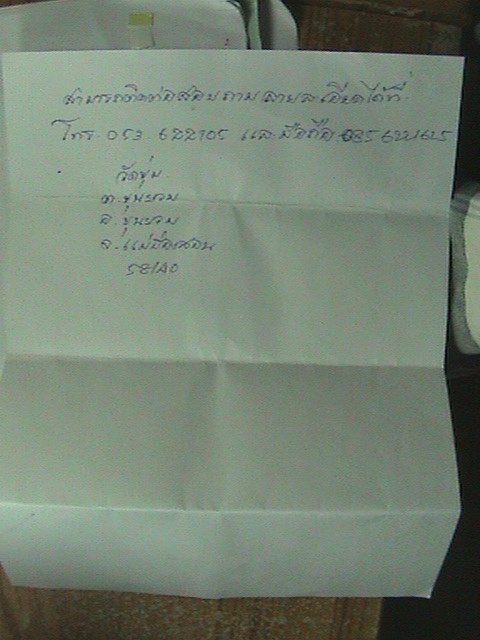 สามารถติดต่อสอบถามรายละเอียดได้ที่
โทร. 053 622105 และมือถือ
วัดขุ่ม
ต. ขุนยวม
อ. ขุนยวม
จ. แม่ฮ่องสอน
58140